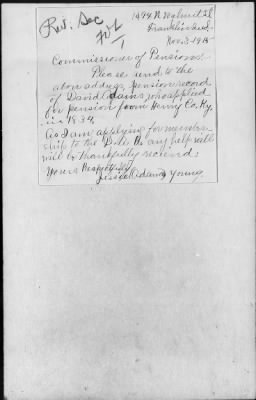 Rev. Sec
1494 N. Walnut St
Franklin Ind.
Nov. 3, 1915
Commissioner of Pensions:
Please send to the
above address, pension record
of David Adams, who applied
for pension from Henry Co. Ky.
in 1834.
As I am applying for member-
ship to the D.A.R. any help will
will be thankfully received.
Yours Respectfully
Jessie Adams Young.